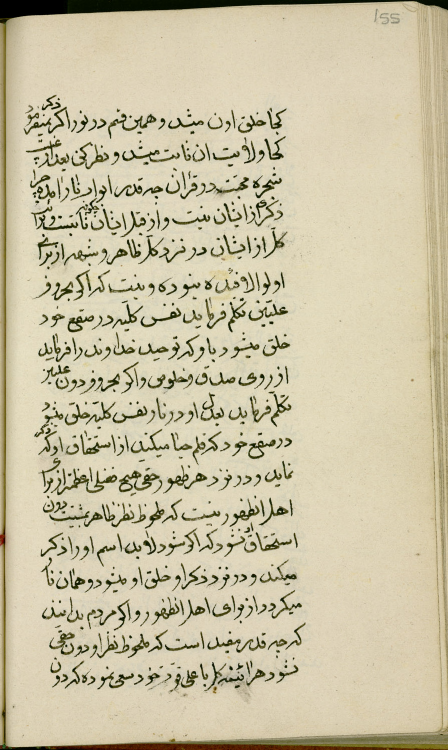 155
کجا خلق اون میشد و همین قسم در نور اگر ذکر نمیفرمود
کجا ولایت ان ثابت میشد و نظر کن بعد از غیبت
شجره محبت در قران چه قدر ابواب نار امده چرا
ذکری از ایشان نیست و از قبل ایشان چگونه ثابت و
کل از ایشان در نزد کل ظاهر و شبهه از برای
اولوا الافئده نبوده و نیست که اگر بحروف
علیین تکلم فرماید نفس کلیه در صقع خود
خلق میشود باو که توحید خداوند را فرماید
از روی صدق و خلوص و اگر بحروف دون علیین
تکلم فرماید بعدل او در نار نفس کلیه خلق میشود
در صقع خود که قلم حیا میکند از استحقاق او که ذکر
نماید و در نزد هر ظهور حقی هیچ فضلی اعظمتر از برای
اهل انظهور نیست که ملحوظ نظر ظاهر بمشیت دون
استحقاق نشود که اگر شود لابد اسم او را ذکر
میکند و در نزد ذکر او خلق او میشود و همان نار
میگردد از برای اهل انظهور و اگر مردم بدانند
که چه قدر مفید است که ملحوظ نظر او دون حقی
نشود هر اینه کل باعلی قوه خود سعی نموده که دون